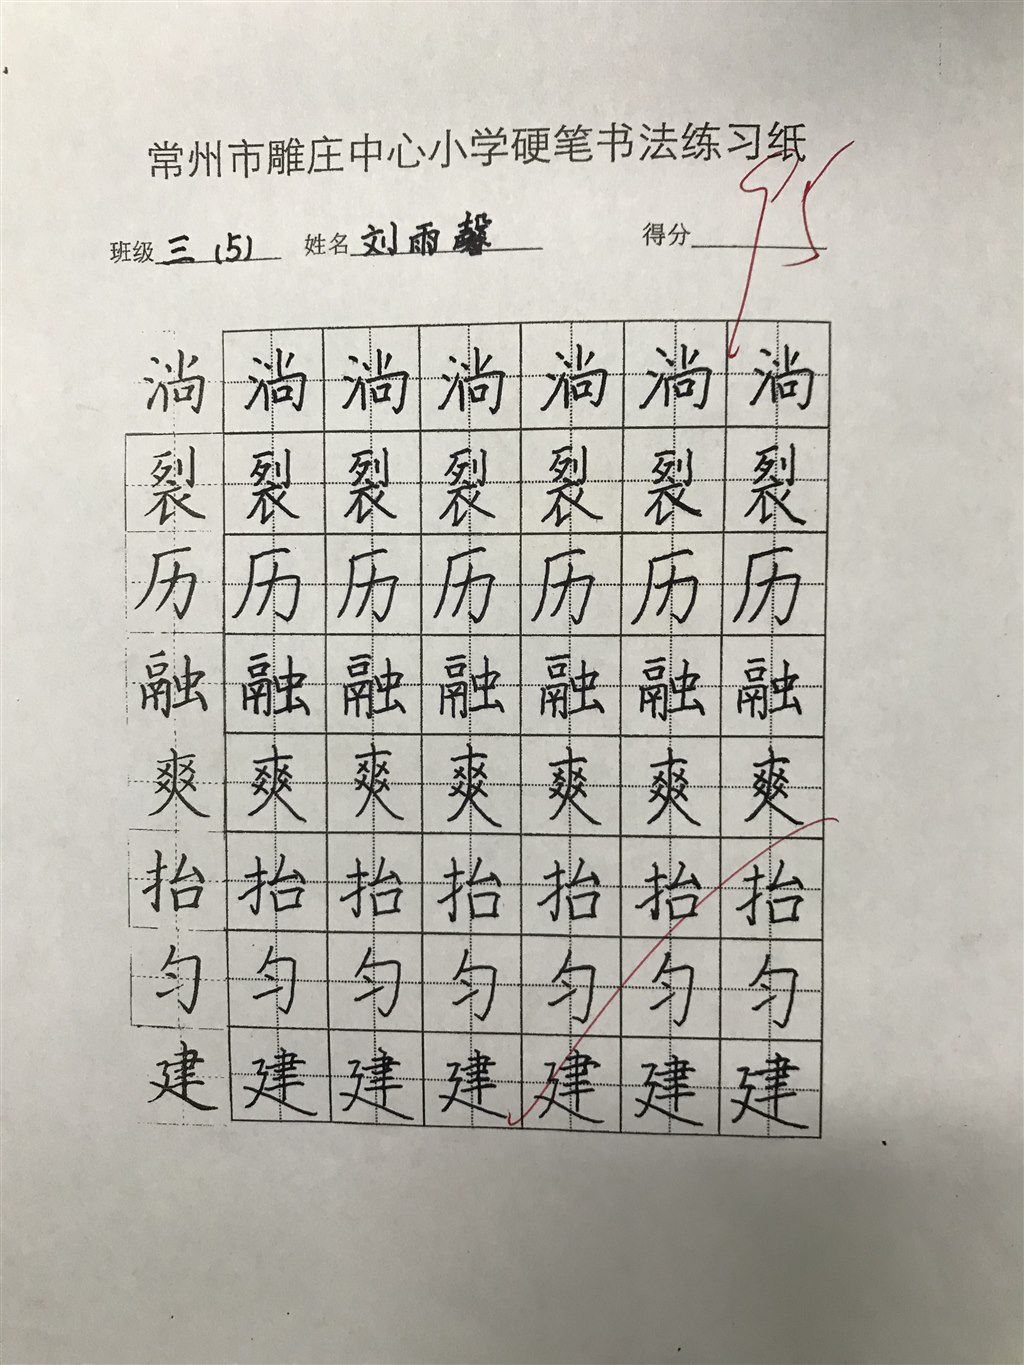 常州市雕庄中心小学硬笔书法练习纸
班级 三（5） 姓名 刘雨馨 得分 95
淌 淌 淌 淌 淌 淌 淌
裂 裂 裂 裂 裂 裂 裂
历 历 历 历 历 历 历
融 融 融 融 融 融 融
爽 爽 爽 爽 爽 爽 爽
抬 抬 抬 抬 抬 抬 抬
匀 匀 匀 匀 匀 匀 匀
建 建 建 建 建 建 建